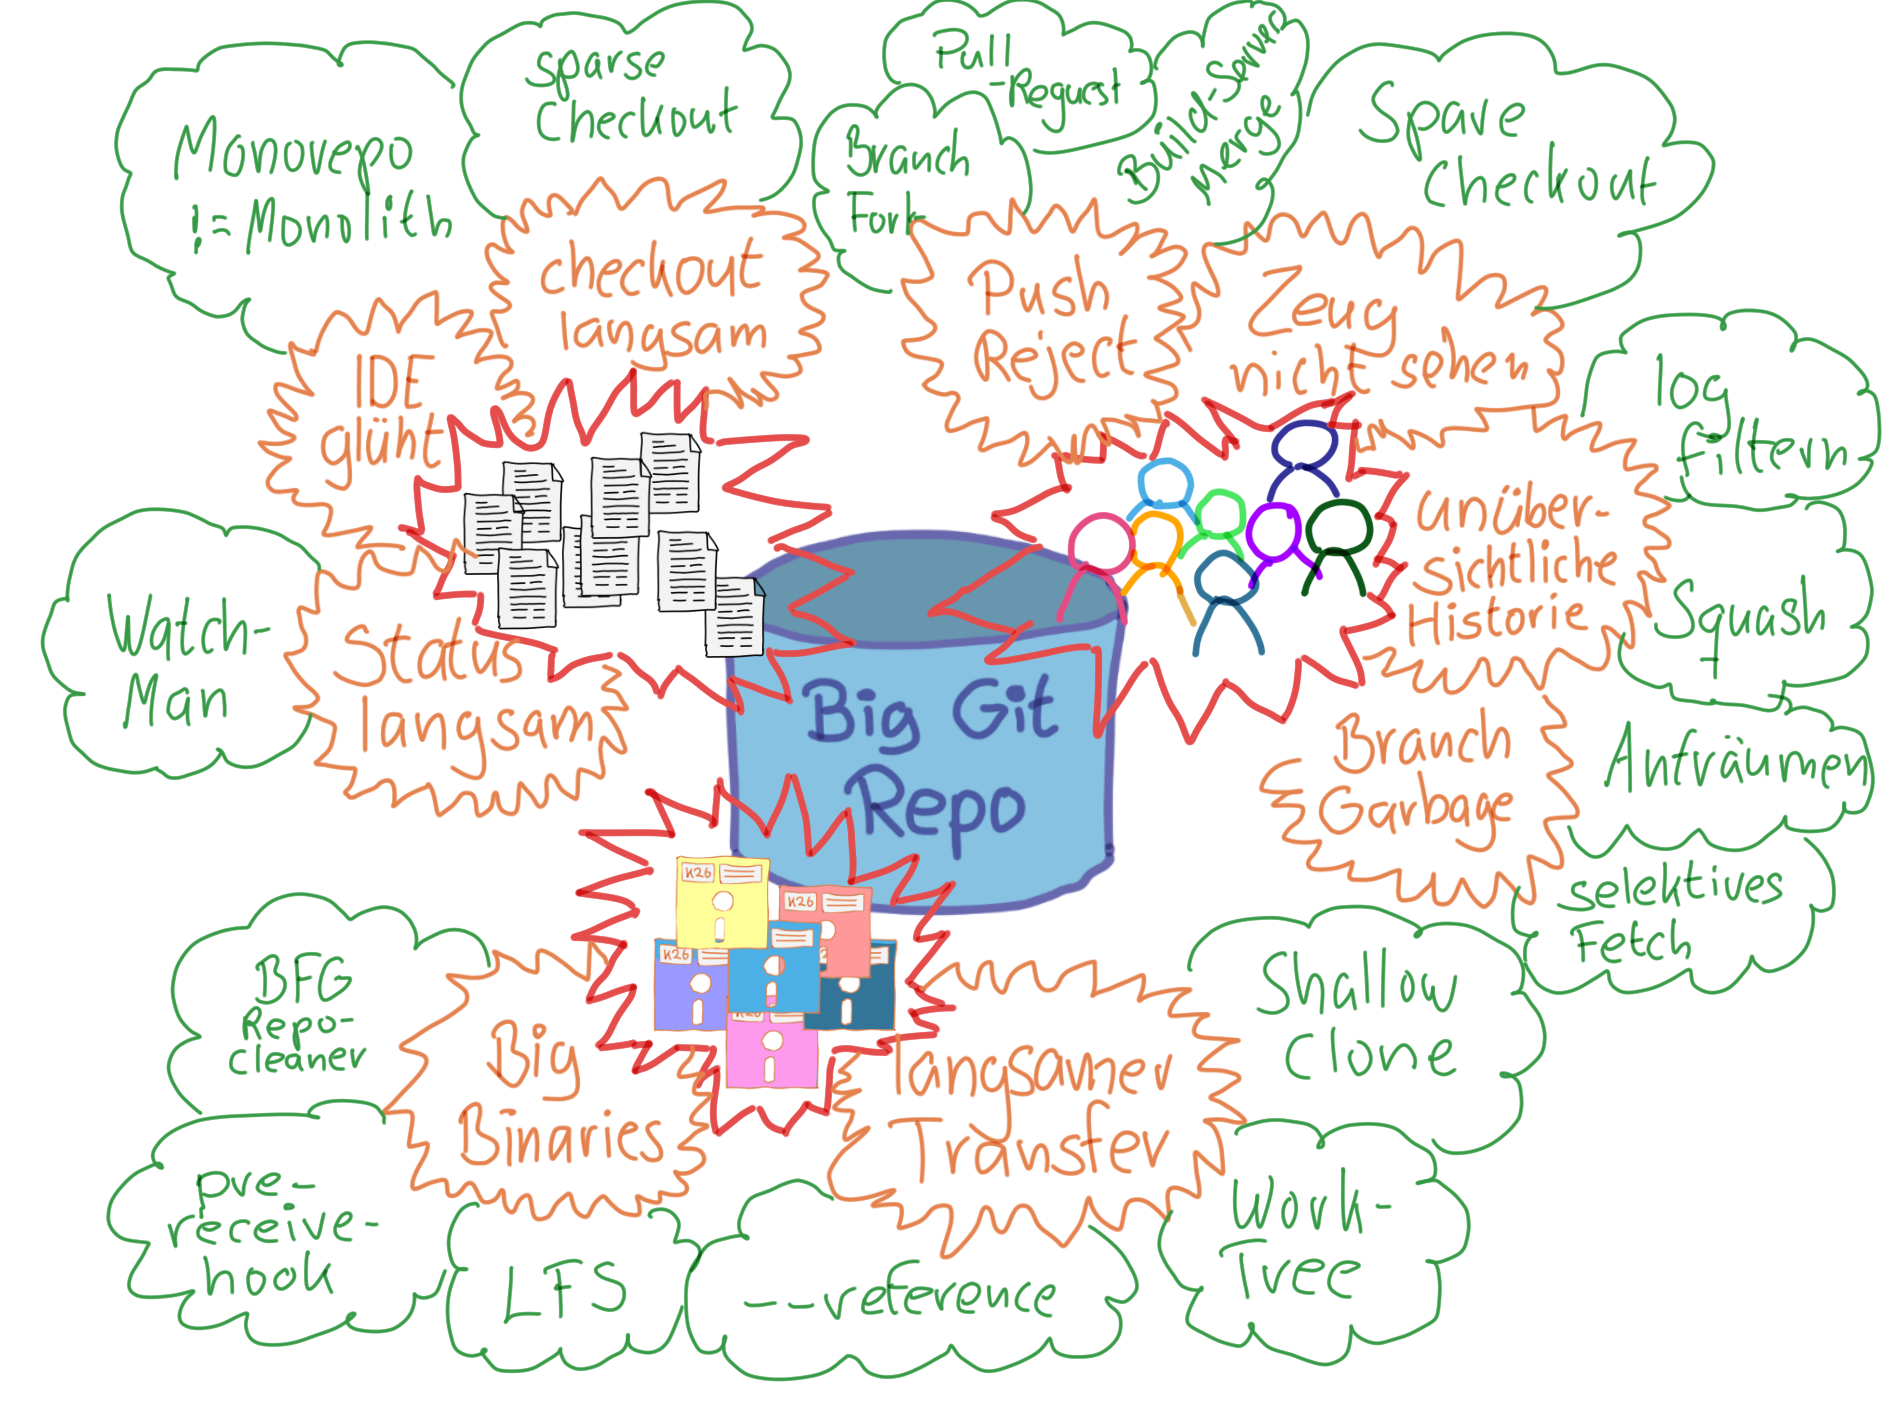 Monorepo
!= Monolith
sparse
Checkout
Pull
-Request
Branch
Fork
Build-Server
Merge
Spare
Checkout
checkout
langsam
IDE
glüht
Push
Reject
Zeug
nicht sehen
log
filtern
unüber-
sichtliche
Historie
Squash
Watch-
Man
Status
langsam
Big Git
Repo
Branch
Garbage
Aufräumen
selektives
Fetch
K26
K26
K26
K26
BFG
Repo-
cleaner
Big
Binaries
langsamer
Transfer
Shallow
Clone
pre-
receive-
hook
LFS
--reference
Work-
Tree